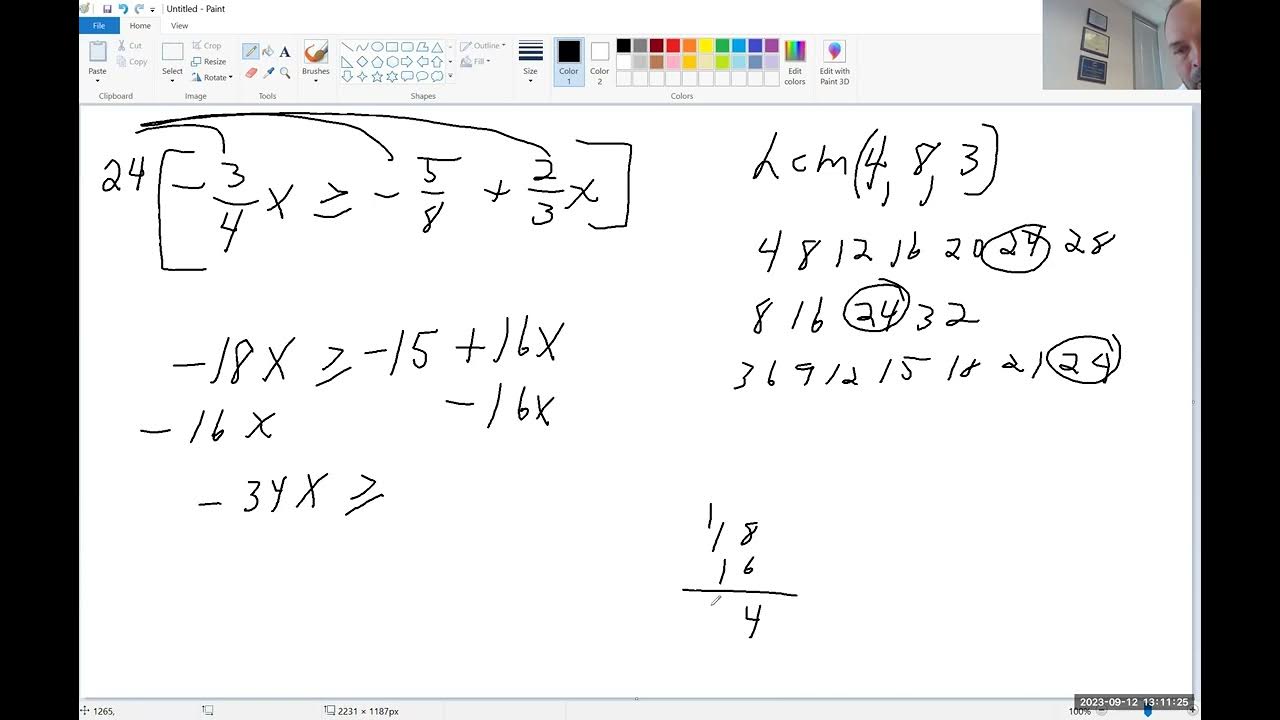 Untitled - Paint
File Home View
Paste Cut Copy Clipboard
Select Crop Resize Rotate Image
Tools
Brushes
Outline Fill Shapes
Size
Color 1 Color 2
Edit colors
Colors
Edit with Paint 3D
24 [ - 3/4 x ≥ - 5/8 + 2/3 x ]
-18x ≥ -15 + 16x
-16x -16x
-34x ≥
Lcm(4, 8, 3)
4 8 12 16 20 24 28
8 16 24 32
3 6 9 12 15 18 21 24
1
18
16
4
1265,
2231 × 1187px
100%
2023-09-12 13:11:25